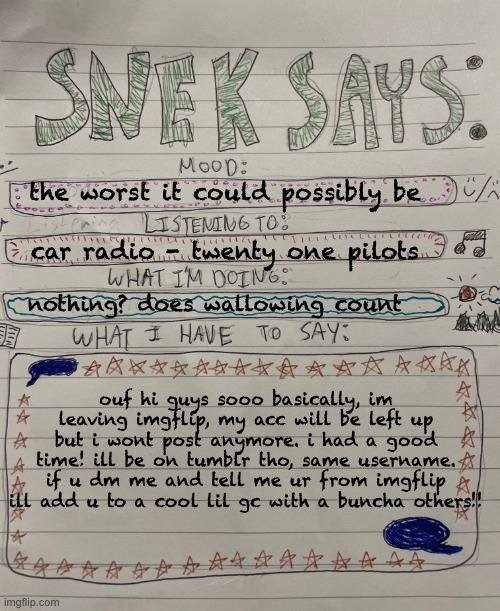 SNEK SAYS:
MOOD:
the worst it could possibly be
LISTENING TO:
car radio - twenty one pilots
WHAT I'M DOING:
nothing? does wallowing count
WHAT I HAVE TO SAY:
ouf hi guys sooo basically, im
leaving imgflip, my acc will be left up
but i wont post anymore. i had a good
time! ill be on tumblr tho, same username.
if u dm me and tell me ur from imgflip
ill add u to a cool lil gc with a buncha others!!
imgflip.com